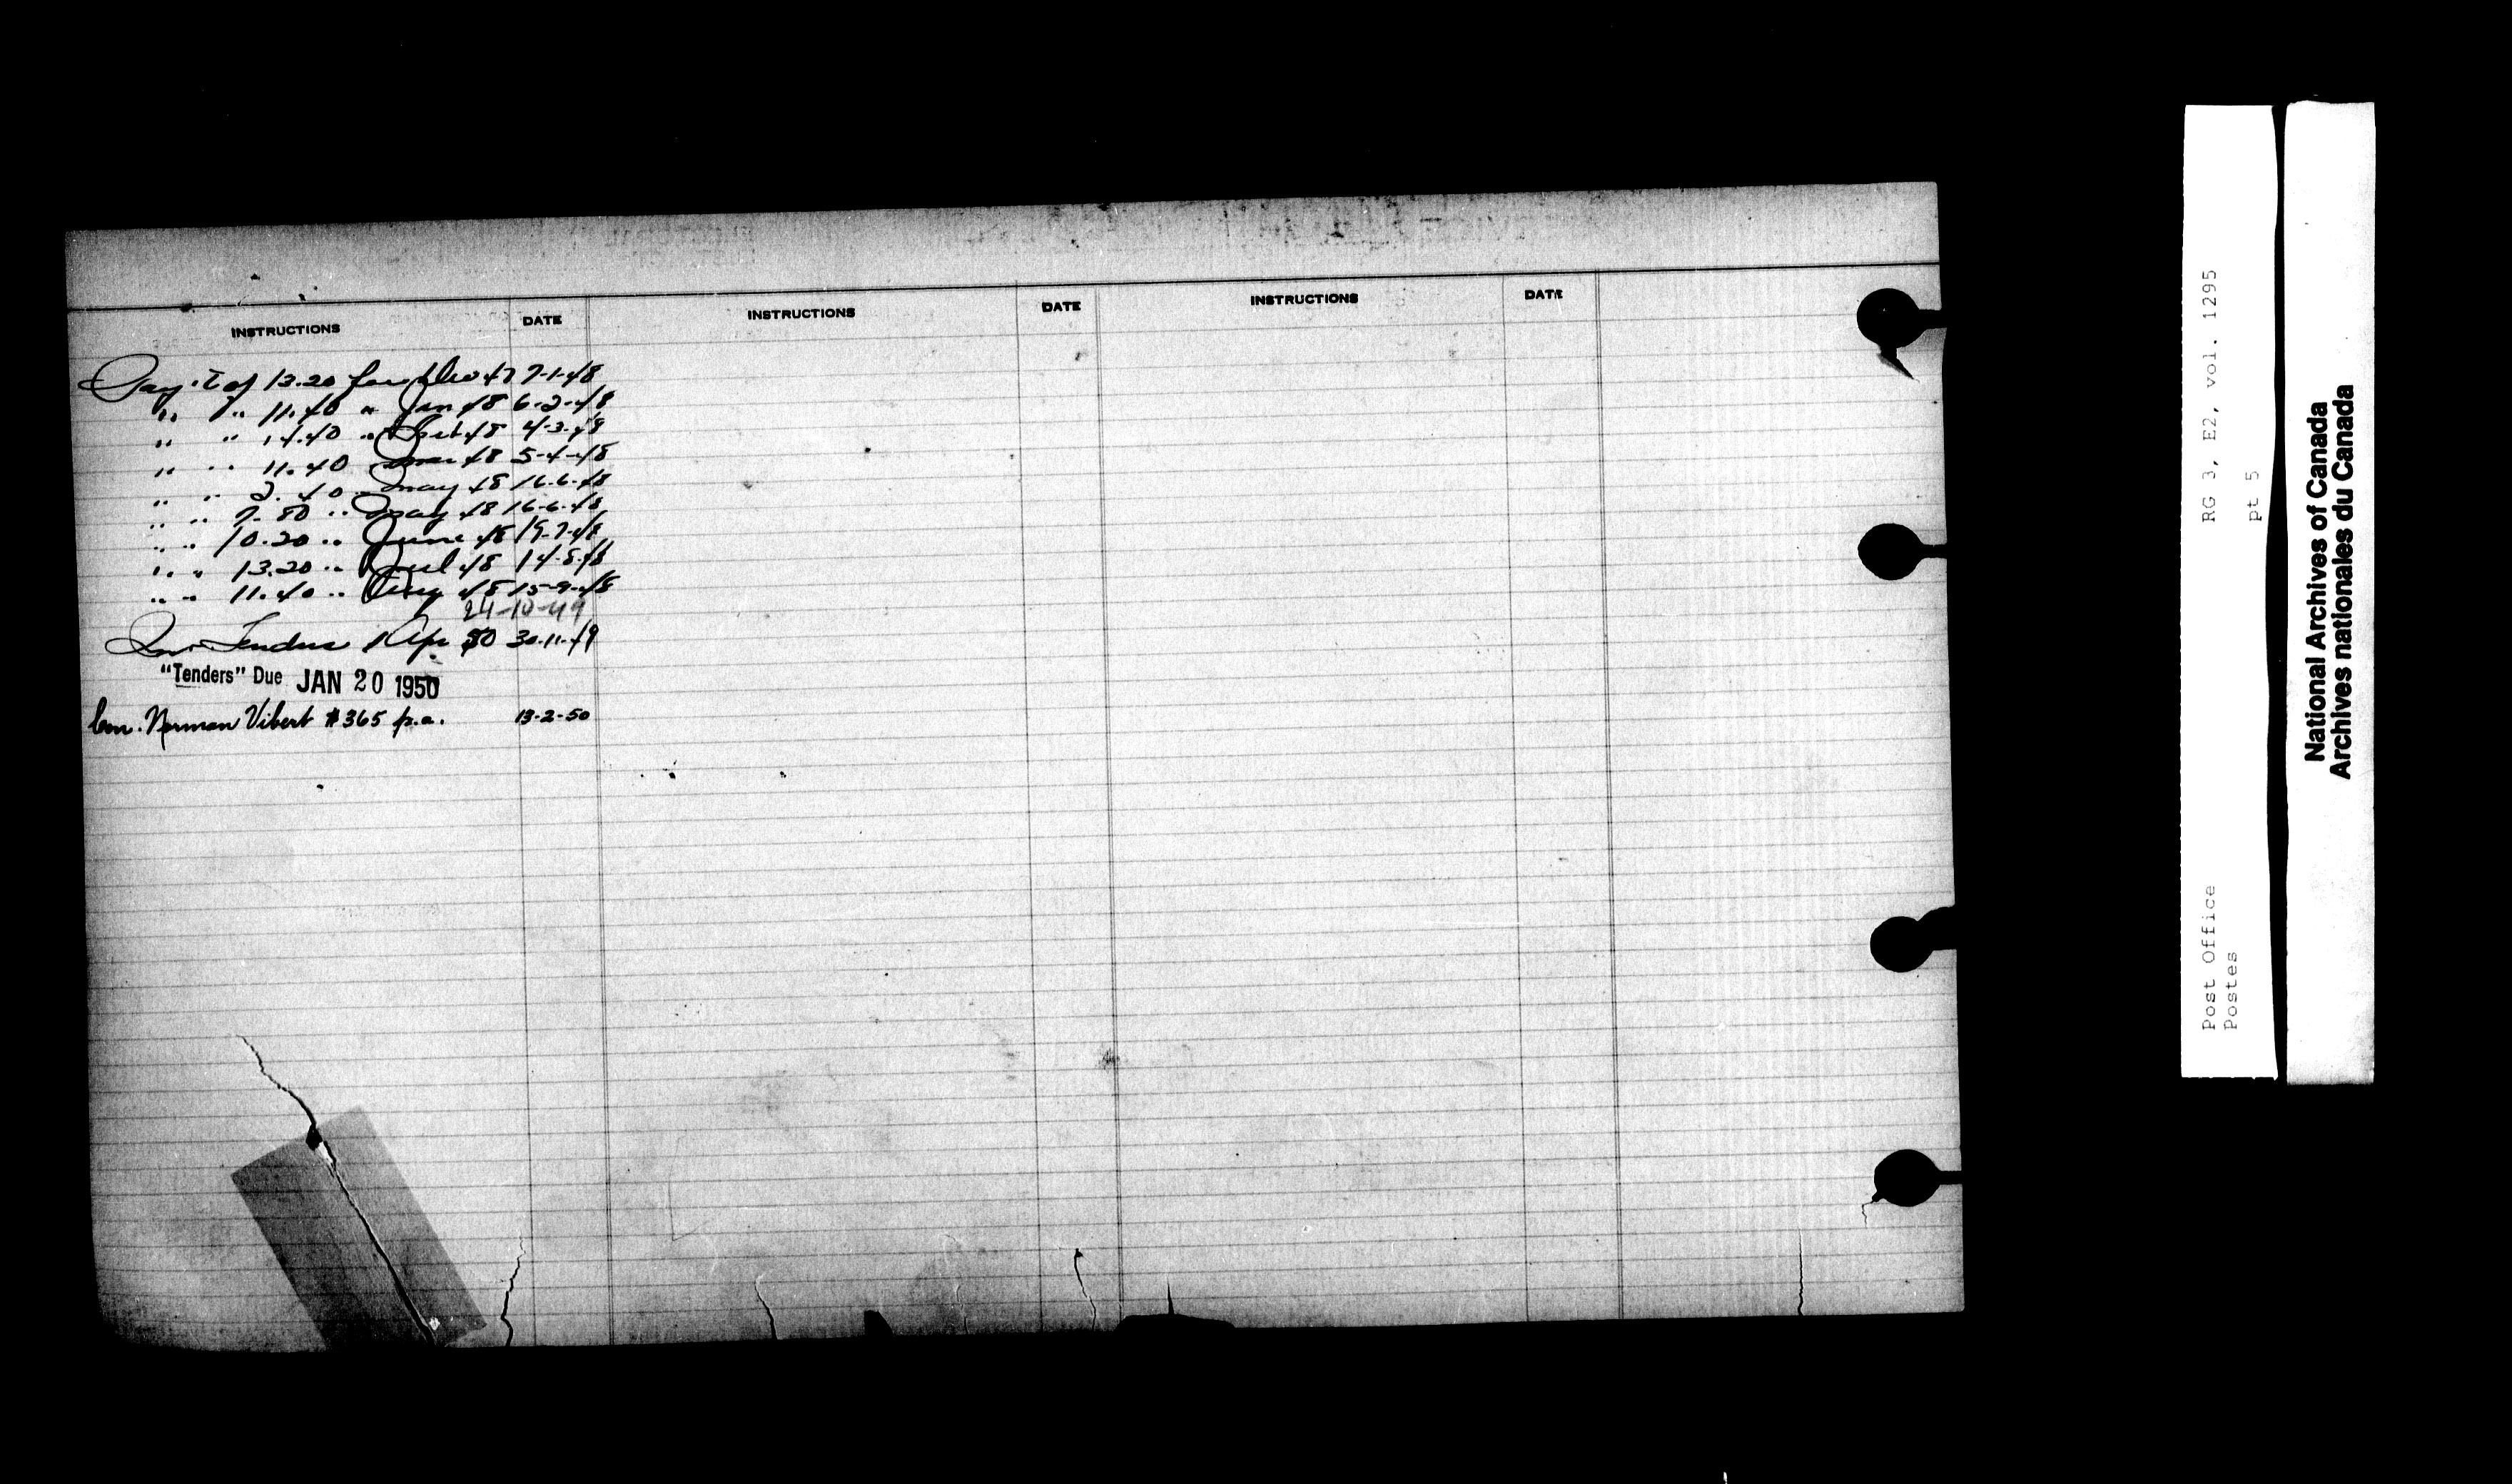 INSTRUCTIONS DATE INSTRUCTIONS DATE INSTRUCTIONS DATE
Pay't of 13.20 for Dec 47 7-1-48
" " 11.40 " Jan 48 6-2-48
" " 14.40 " Feb 48 4-3-48
" " 11.40 Mar 48 5-4-48
" " 2.40 " May 48 16-6-48
" " 7.80 " May 48 16-6-48
" " 10.20 " June 48 19-7-48
" " 13.20 " Jul 48 14-8-48
" " 11.40 " Aug 48 15-9-48
24-10-49
Inv. Tenders 1 Apr 50 30-11-49
"Tenders" Due JAN 20 1950
Con. Norman Vibert $365 p.a. 13-2-50
RG 3, E2, vol. 1295
pt 5
Post Office
Postes
National Archives of Canada
Archives nationales du Canada